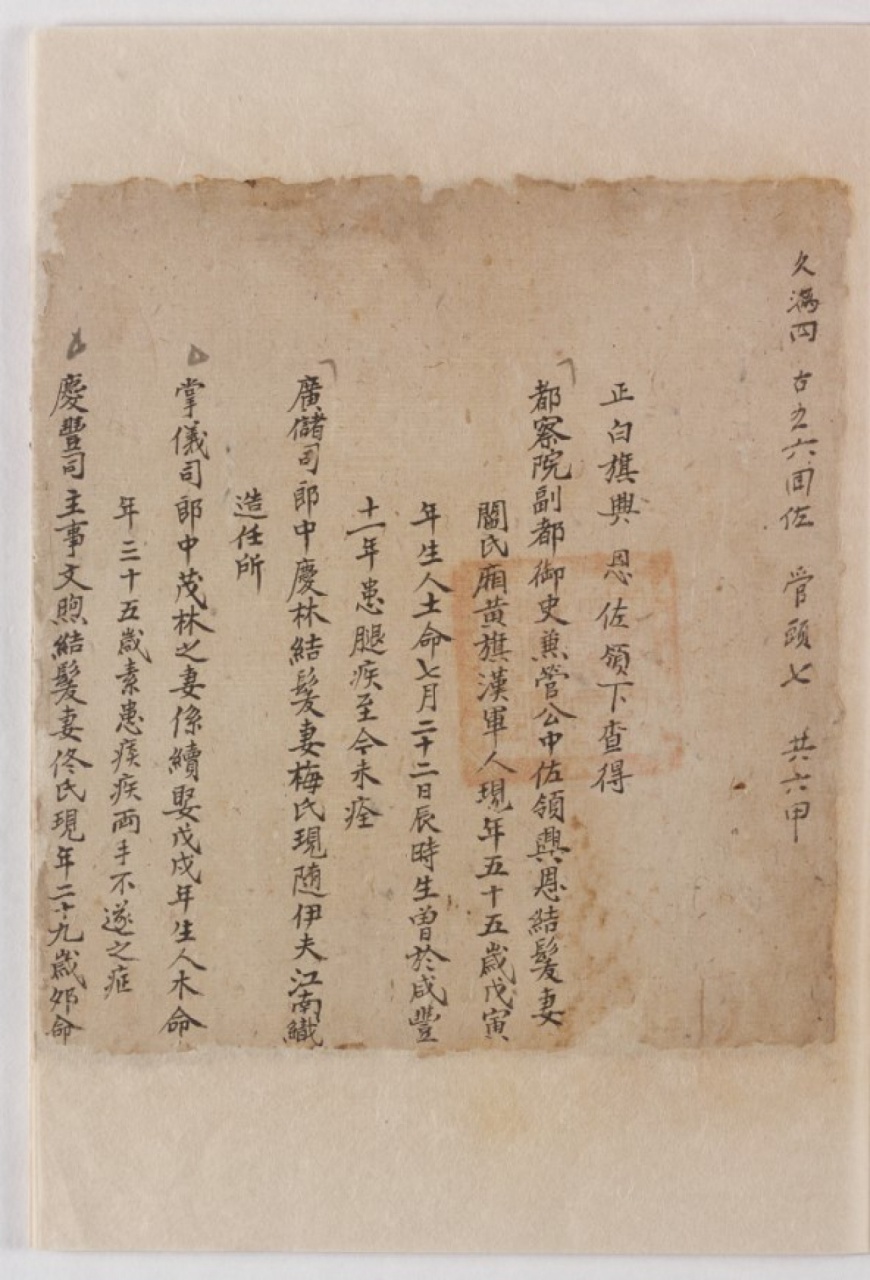 久滿四 古五六固佐 管頭七 共六甲
正白旗興 恩 佐領下查得
都察院副都御史兼管公中佐領興恩結髮妻
關氏廂黃旗漢軍人現年五十五歲戊寅
年生人土命七月二十二日辰時生曾於咸豐
十一年患腿疾至今未痊
廣儲司郎中慶林結髮妻梅氏現隨伊夫江南織
造任所
掌儀司郎中茂林之妻係續娶戊戌年生人木命
年三十五歲素患痰疾兩手不遂之症
慶豐司主事文煦結髮妻佟氏現年二十九歲 命